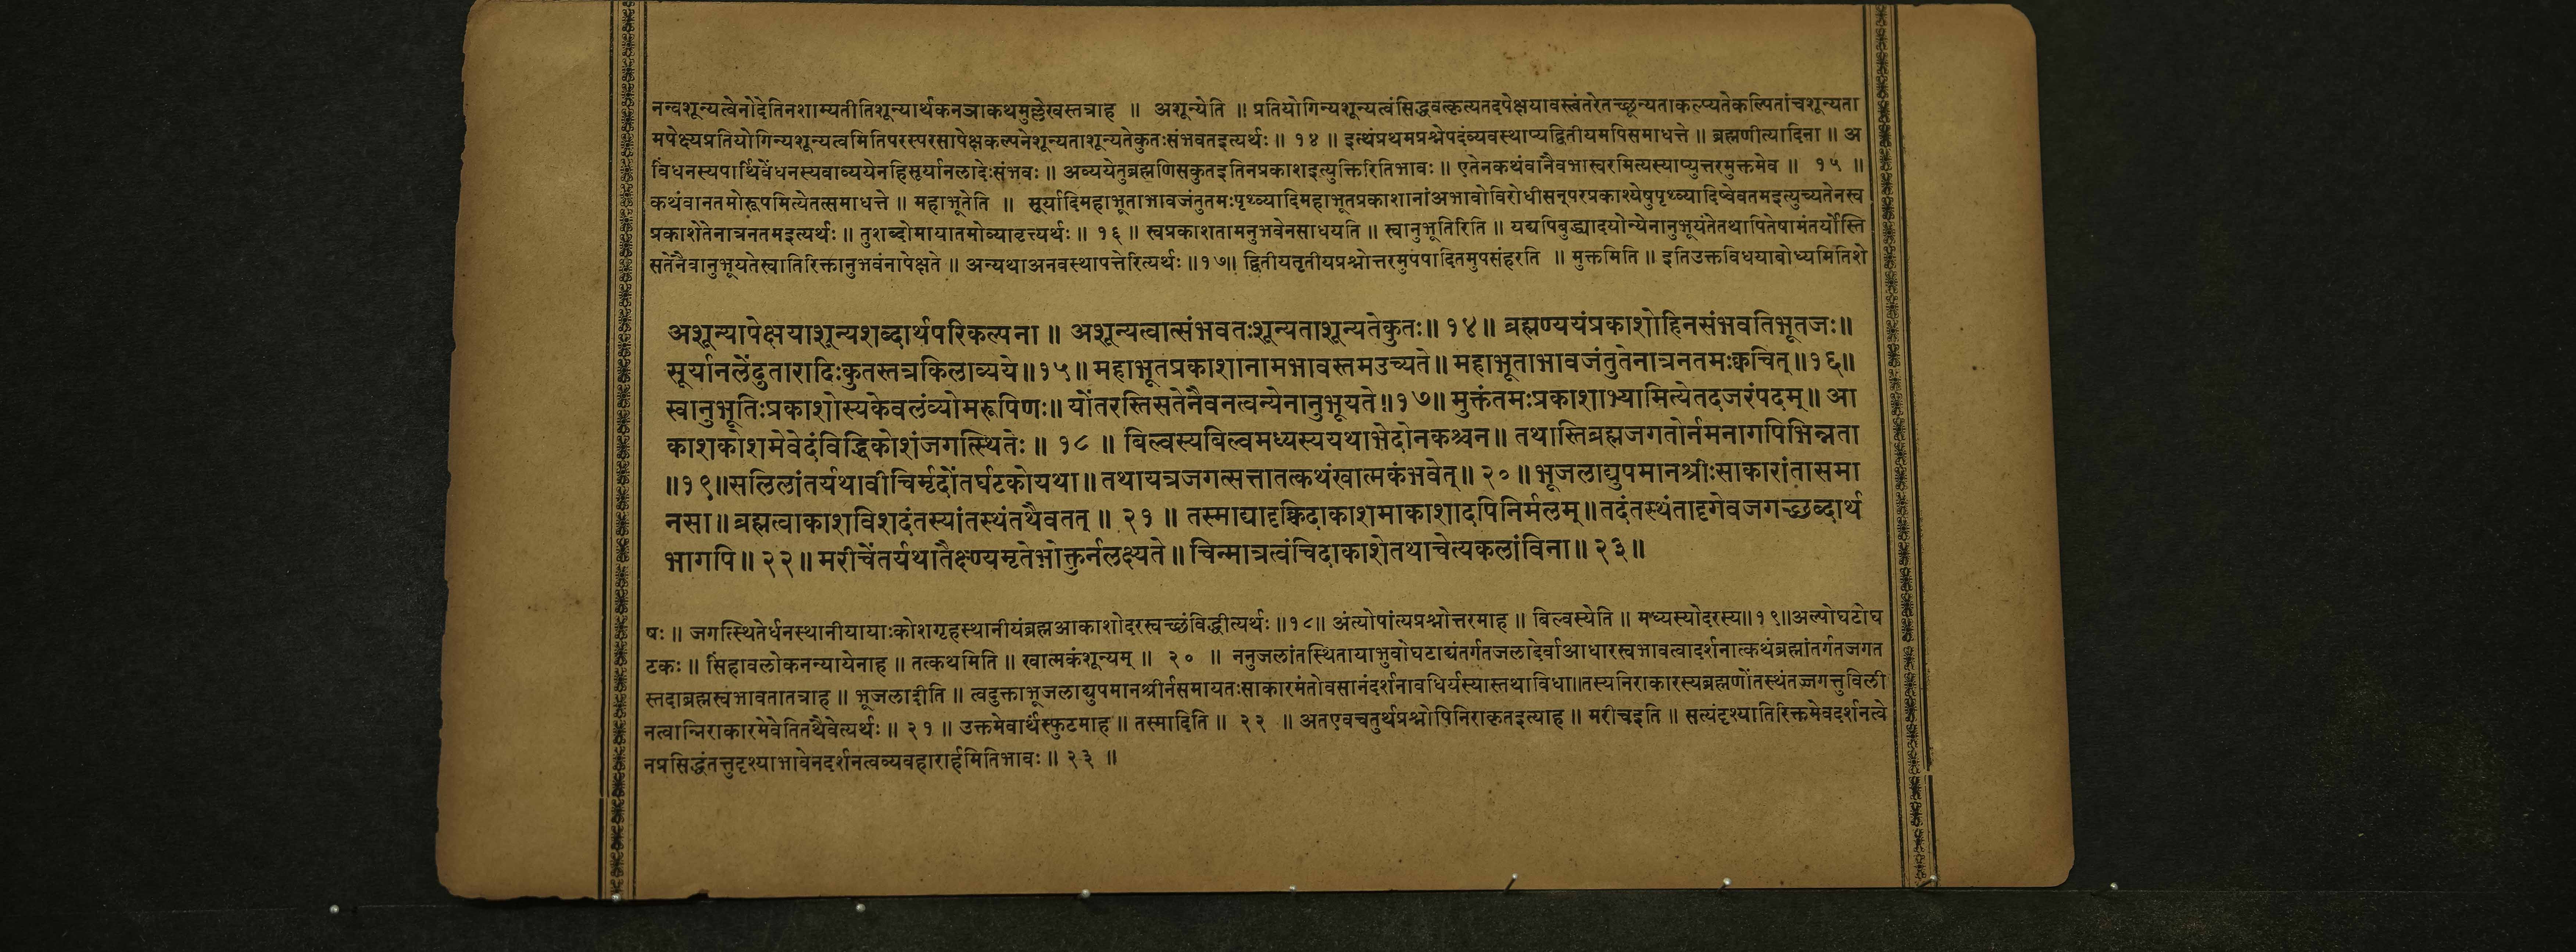 नन्वशून्यत्वेनोदेतिनशाम्यतीतिशून्यार्थकनञाकथमुल्लेखस्तत्राह ॥ अशून्येति ॥ प्रतियोगिन्यशून्यत्वंसिद्धवत्कृत्यतदपेक्षयावस्त्वंतरेतच्छून्यताकल्प्यतेकल्पितांचशून्यता
मपेक्ष्यप्रतियोगिन्यशून्यत्वमितिपरस्परसापेक्षकल्पनेशून्यताशून्यतेकुतःसंभवतइत्यर्थः ॥ १४ ॥ इत्थंप्रथमप्रश्नेपदंव्यवस्थाप्यद्वितीयमपिसमाधत्ते ॥ ब्रह्मणीत्यादिना ॥ अ
बिंधनस्यपार्थिवेंधनस्यवाव्ययेनहिसूर्यानलादेःसंभवः ॥ अव्ययेतुब्रह्मणिसकुतइतिनप्रकाशइत्युक्तिरितिभावः ॥ एतेनकथंवानैवभास्वरमित्यस्याप्युत्तरमुक्तमेव ॥ १५ ॥
कथंवानतमोरूपमित्येतत्समाधत्ते ॥ महाभूतेति ॥ सूर्यादिमहाभूताभावजंतुतमःपृथ्व्यादिमहाभूतप्रकाशानांअभावोविरोधीसन्परप्रकाश्येषुपृथ्व्यादिष्वेवतमइत्युच्यतेनस्व
प्रकाशेतेनात्रनतमइत्यर्थः ॥ तुशब्दोमायातमोव्यावृत्त्यर्थः ॥ १६ ॥ स्वप्रकाशतामनुभवेनसाधयति ॥ स्वानुभूतिरिति ॥ यद्यपिबुद्ध्यादयोन्येनानुभूयंतेतथापितेषामंतर्योस्ति
सतेनैवानुभूयतेस्वातिरिक्तानुभवंनापेक्षते ॥ अन्यथाअनवस्थापत्तेरित्यर्थः ॥१७॥ द्वितीयतृतीयप्रश्नोत्तरमुपपादितमुपसंहरति ॥ मुक्तमिति ॥ इतिउक्तविधयाबोध्यमितिशे
अशून्यापेक्षयाशून्यशब्दार्थपरिकल्पना ॥ अशून्यत्वात्संभवतःशून्यताशून्यतेकुतः॥ १४॥ ब्रह्मण्ययंप्रकाशोहिनसंभवतिभूतजः॥
सूर्यानलेंदुतारादिःकुतस्तत्रकिलाव्यये॥१५॥ महाभूतप्रकाशानामभावस्तमउच्यते॥ महाभूताभावजंतुतेनात्रनतमःक्वचित्॥१६॥
स्वानुभूतिःप्रकाशोस्यकेवलंव्योमरूपिणः॥ योंतरस्तिसतेनैवनत्वन्येनानुभूयते॥१७॥ मुक्तंतमःप्रकाशाभ्यामित्येतदजरंपदम्॥ आ
काशकोशमेवेदंविद्धिकोशंजगत्स्थितेः ॥ १८ ॥ बिल्वस्यबिल्वमध्यस्ययथाभेदोनकश्चन॥ तथास्तिब्रह्मजगतोर्नमनागपिभिन्नता
॥१९॥सलिलांतर्यथावीचिर्मृदोंतर्घटकोयथा॥ तथायत्रजगत्सत्तातत्कथंखात्मकंभवेत्॥ २०॥ भूजलाद्युपमानश्रीःसाकारांतासमा
नसा॥ ब्रह्मत्वाकाशविशदंतस्यांतस्थंतथैवतत् ॥ २१ ॥ तस्माद्यादृक्चिदाकाशमाकाशादपिनिर्मलम्॥ तदंतस्थंतादृगेवजगच्छब्दार्थ
भागपि॥ २२॥ मरीचेंतर्यथातैक्ष्ण्यमृतेभोक्तुर्नलक्ष्यते॥ चिन्मात्रत्वंचिदाकाशेतथाचेत्यकलांविना॥ २३॥
षः ॥ जगत्स्थितेर्धनस्थानीयायाःकोशगृहस्थानीयंब्रह्मआकाशोदरस्वच्छंविद्धीत्यर्थः ॥१८॥ अंत्योपांत्यप्रश्नोत्तरमाह ॥ बिल्वस्येति ॥ मध्यस्योदरस्य॥१९॥अल्पोघटोघ
टकः ॥ सिंहावलोकनन्यायेनाह ॥ तत्कथमिति ॥ खात्मकंशून्यम् ॥ २० ॥ ननुजलांतस्थितायाभुवोघटाद्यंतर्गतजलादेर्वाआधारस्वभावत्वादर्शनात्कथंब्रह्मांतर्गतजगत
स्तदाब्रह्मस्वभावतातत्राह ॥ भूजलादीति ॥ त्वदुक्ताभूजलाद्युपमानश्रीर्नसमायतःसाकारमंतोवसानंदर्शनावधिर्यस्यास्तथाविधा॥तस्यनिराकारस्यब्रह्मणोंतस्थंतज्जगत्तुविली
नत्वान्निराकारमेवेतितथैवेत्यर्थः ॥ २१ ॥ उक्तमेवार्थंस्फुटमाह ॥ तस्मादिति ॥ २२ ॥ अतएवचतुर्थप्रश्नोपिनिराकृतइत्याह ॥ मरीचइति ॥ सत्यंदृश्यातिरिक्तमेवदर्शनत्वे
नप्रसिद्धंतत्तुदृश्याभावेनदर्शनत्वव्यवहारार्हमितिभावः ॥ २३ ॥